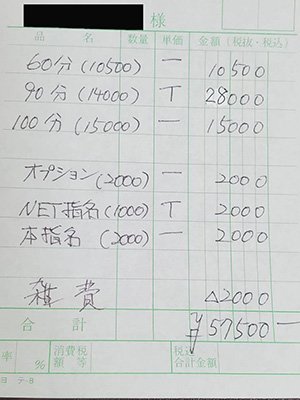 様
品 名 数量 単価 金額(税抜・税込)
60分(10500) 一 10500
90分(14000) T 28000
100分(15000) 一 15000
オプション(2000) 一 2000
NET指名(1000) T 2000
本指名(2000) 一 2000
雑費 △2000
合計 ¥57500-
率 % 消費税額等 税込合計金額
ヨ テ-8